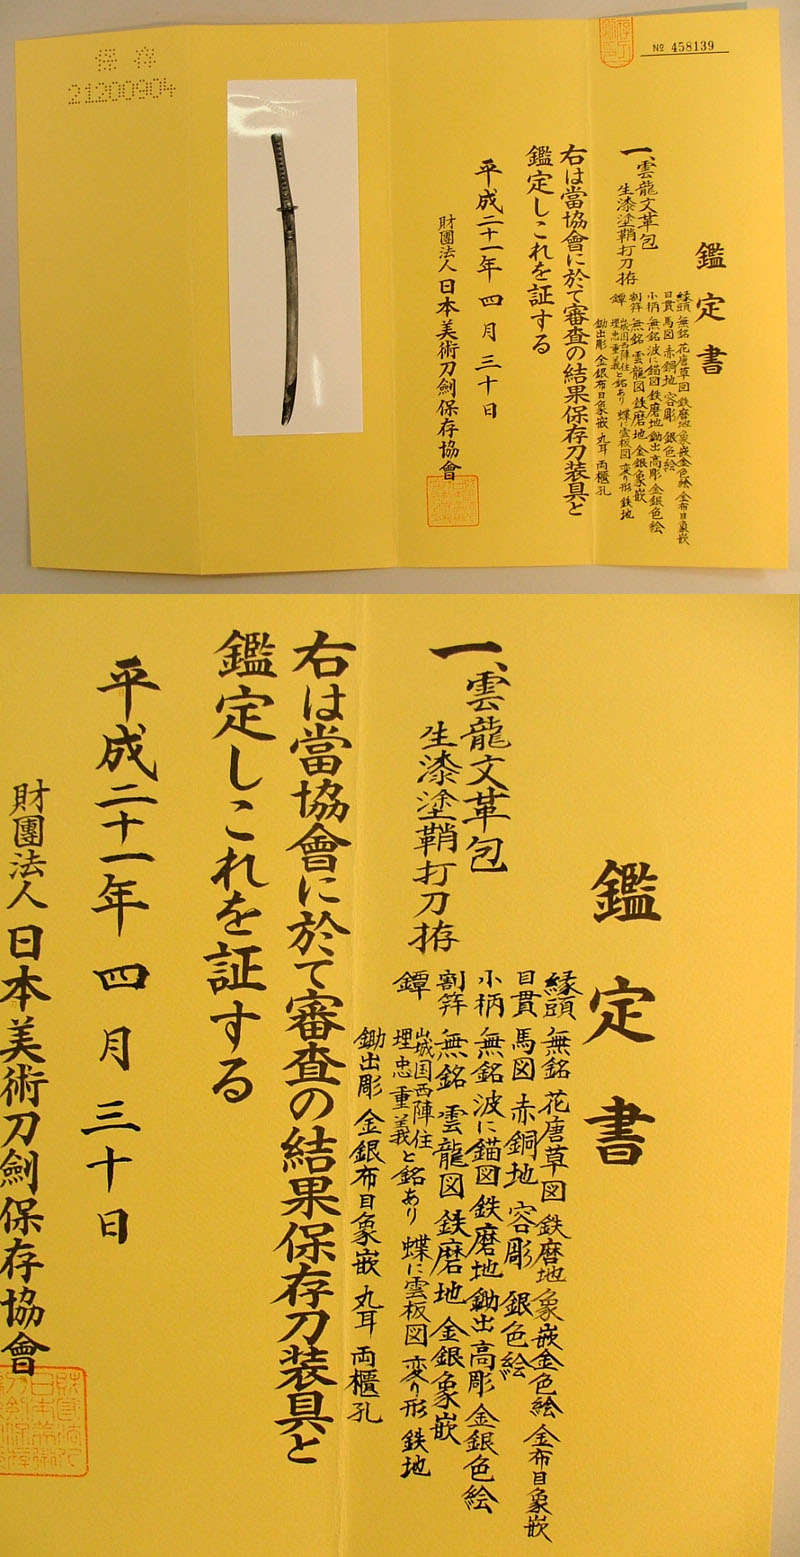 保存
21200904
№ 458139
鑑定書
一、雲龍文革包
生漆塗鞘打刀拵
縁頭 無銘 花唐草図 鉄磨地 象嵌金色絵 金布目象嵌
目貫 馬図 赤銅地 容彫 銀色絵
小柄 無銘 波に錨図 鉄磨地 鋤出高彫 金銀色絵
割笄 無銘 雲龍図 鉄磨地 金銀象嵌
鐔 山城国西陣住
埋忠重義と銘あり 蝶に雲板図 変り形 鉄地
鋤出彫 金銀布目象嵌 丸耳 両櫃孔
右は當協會に於て審査の結果保存刀装具と
鑑定しこれを証する
平成二十一年 四月 三十日
財團法人 日本美術刀劍保存協會
鑑定書
一、雲龍文革包
生漆塗鞘打刀拵
縁頭 無銘 花唐草図 鉄磨地 象嵌金色絵 金布目象嵌
目貫 馬図 赤銅地 容彫 銀色絵
小柄 無銘 波に錨図 鉄磨地 鋤出高彫 金銀色絵
割笄 無銘 雲龍図 鉄磨地 金銀象嵌
鐔 山城国西陣住
埋忠重義と銘あり 蝶に雲板図 変り形 鉄地
鋤出彫 金銀布目象嵌 丸耳 両櫃孔
右は當協會に於て審査の結果保存刀装具と
鑑定しこれを証する
平成二十一年 四月 三十日
財團法人 日本美術刀劍保存協會